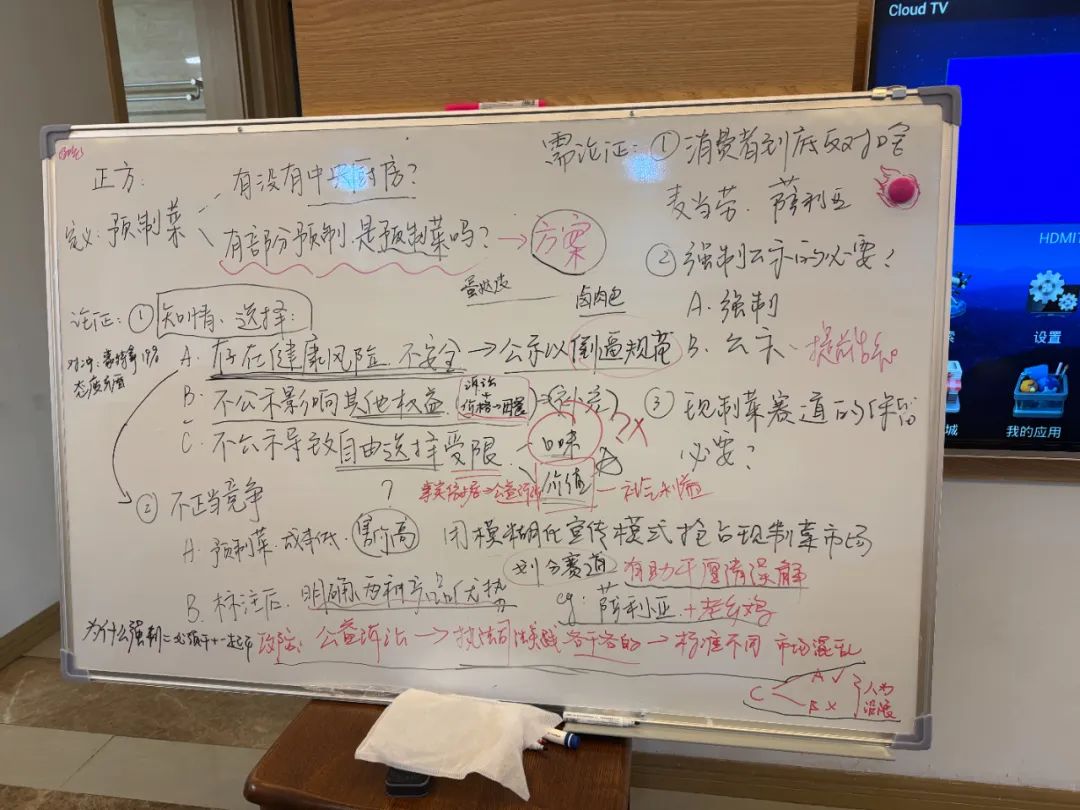 Cloud TV
HDMI
设置
我的应用
正方:
有没有中央厨房?
定义: 预制菜
有部分预制是预制菜吗? → 方案
蛋挞皮
卤肉包
需论证: ① 消费者到底反对啥
麦当劳. 萨利亚
② 强制公示的必要?
A. 强制
B. 公示.
③ 现制菜赛道的保留
必要?
论证: ① 知情、选择:
A. 存在健康风险. 不安全 → 公示以倒逼规范
B. 不公示影响其他权益 (诉讼+价格) →
C. 不公示导致自由选择受限. 口味
价值 —
② 不正当竞争
A. 预制菜. 成本低. 售价高 用模糊化宣传模式抢占现制菜市场
划分赛道 有助于厘清误解
B. 标注后. 明确两种产品优势 eg: 萨利亚 + 老乡鸡
为什么强制= 公益诉讼 → 执法司法实践各干各的 → 标准不同 市场混乱
C A ✓
B ×
人为